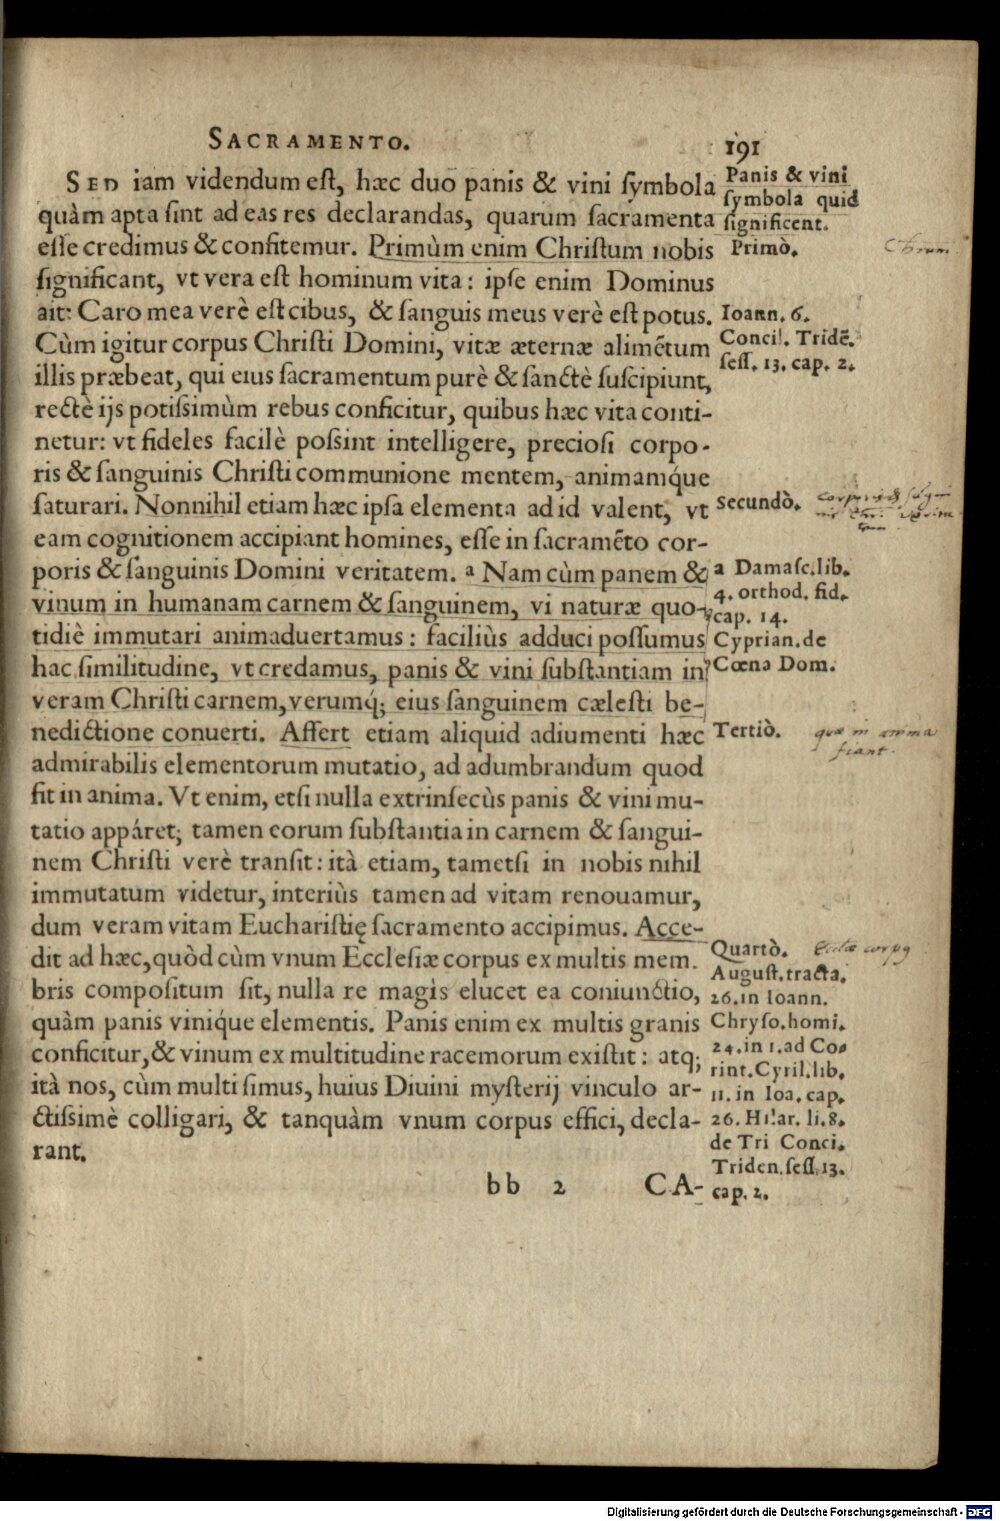 SACRAMENTO.
191
SED iam videndum est, hæc duo panis & vini symbola
quàm apta sint ad eas res declarandas, quarum sacramenta
esse credimus & confitemur. Primùm enim Christum nobis
significant, vt vera est hominum vita: ipse enim Dominus
ait: Caro mea verè est cibus, & sanguis meus verè est potus.
Cùm igitur corpus Christi Domini, vitæ æternæ alimẽtum
illis præbeat, qui eius sacramentum purè & sanctè suscipiunt,
rectè ijs potissimùm rebus conficitur, quibus hæc vita conti-
netur: vt fideles facilè possint intelligere, preciosi corpo-
ris & sanguinis Christi communione mentem, animamq́ue
saturari. Nonnihil etiam hæc ipsa elementa ad id valent, vt
eam cognitionem accipiant homines, esse in sacramẽto cor-
poris & sanguinis Domini veritatem. a Nam cùm panem &
vinum in humanam carnem & sanguinem, vi naturæ quo-
tidiè immutari animaduertamus: faciliùs adduci possumus
hac similitudine, vt credamus, panis & vini substantiam in
veram Christi carnem, verumq́; eius sanguinem cælesti be-
nedictione conuerti. Affert etiam aliquid adiumenti hæc
admirabilis elementorum mutatio, ad adumbrandum quod
fit in anima. Vt enim, etsi nulla extrinsecùs panis & vini mu-
tatio appáret; tamen eorum substantia in carnem & sangui-
nem Christi verè transit: ità etiam, tametsi in nobis nihil
immutatum videtur, interiùs tamen ad vitam renouamur,
dum veram vitam Eucharistię sacramento accipimus. Acce-
dit ad hæc, quòd cùm vnum Ecclesiæ corpus ex multis mem-
bris compositum sit, nulla re magis elucet ea coniunctio,
quàm panis viniq́ue elementis. Panis enim ex multis granis
conficitur, & vinum ex multitudine racemorum existit: atq;
ità nos, cùm multi simus, huius Diuini mysterij vinculo ar-
ctissimè colligari, & tanquàm vnum corpus effici, decla-
rant.
bb 2 CA-
Panis & vini
symbola quid
significent.
Primò.
Ioann. 6.
Concil. Tridẽ.
sess. 13. cap. 2.
Secundò.
a Damasc. lib.
4. orthod. fid.
cap. 14.
Cyprian. de
Cœna Dom.
Tertiò.
quæ in anima
fiant.
Quartò.
August. tracta.
26. in Ioann.
Chryso. homi.
24. in 1. ad Co-
rint. Cyril. lib.
11. in Ioa. cap.
26. Hilar. li. 8.
de Tri Conci.
Triden. sess. 13.
cap. 2.
Digitalisierung gefördert durch die Deutsche Forschungsgemeinschaft - DFG